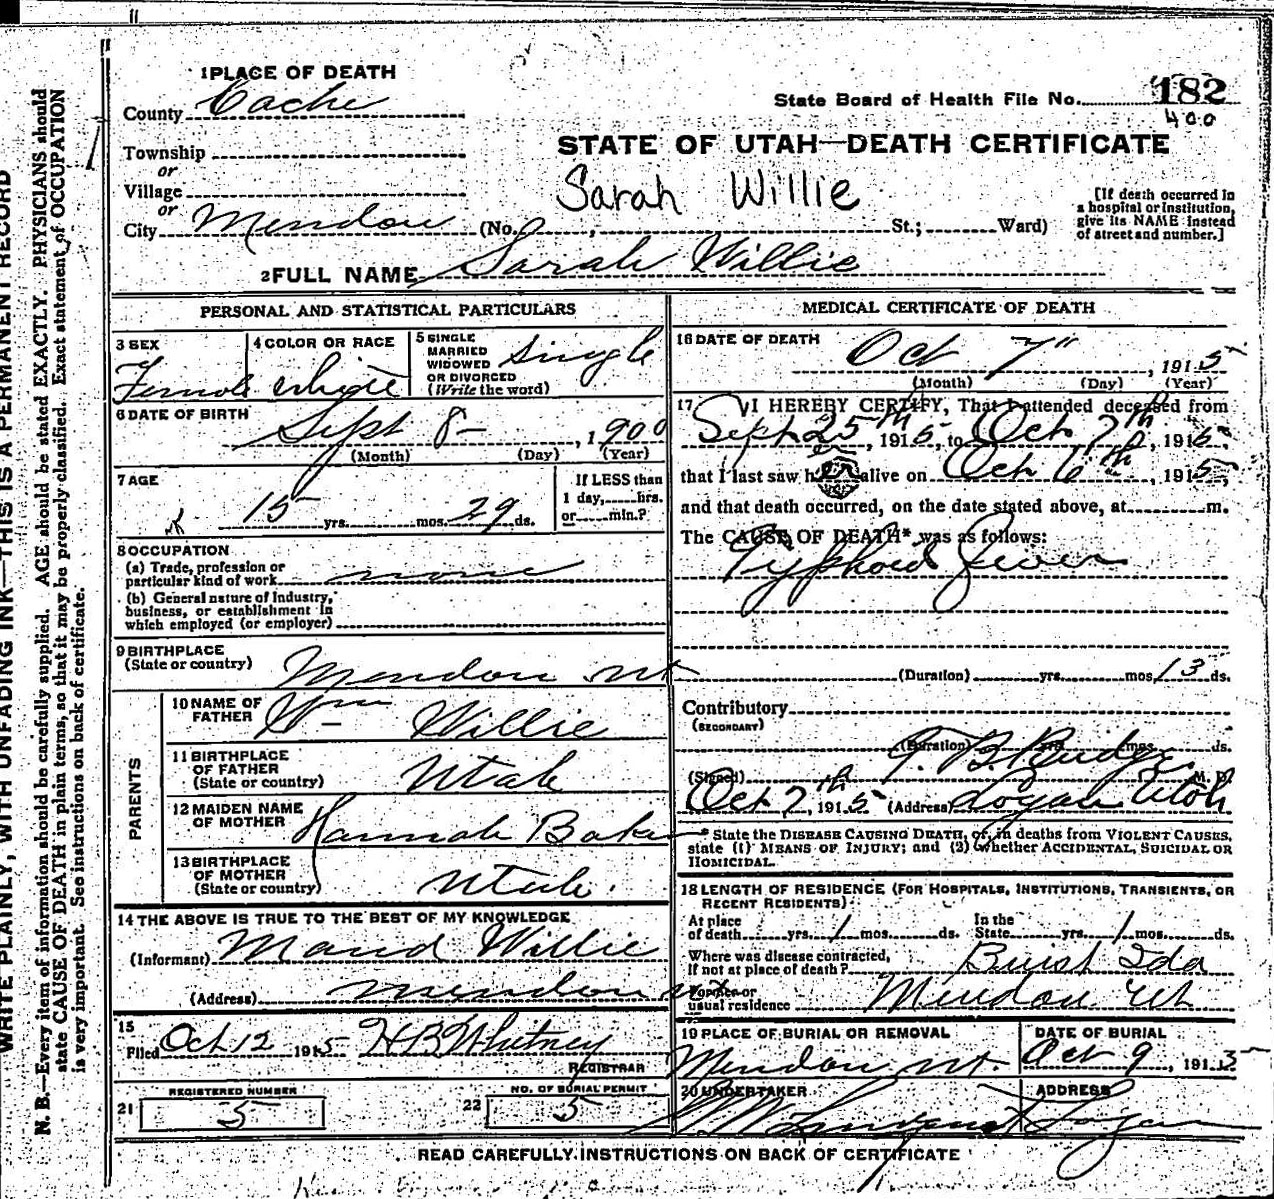 WRITE PLAINLY, WITH UNFADING INK—THIS IS A PERMANENT RECORD
N. B.—Every item of information should be carefully supplied. AGE should be stated EXACTLY. PHYSICIANS should
state CAUSE OF DEATH in plain terms, so that it may be properly classified. Exact statement of OCCUPATION
is very important. See instructions on back of certificate.
1 PLACE OF DEATH
County Cache
State Board of Health File No. 182
400
STATE OF UTAH—DEATH CERTIFICATE
Township
or
Village
or
Sarah Willie
[If death occurred in
a hospital or institution,
give its NAME instead
of street and number.]
City Mendon (No. , St.; Ward)
2 FULL NAME Sarah Willie
PERSONAL AND STATISTICAL PARTICULARS
3 SEX
Female
4 COLOR OR RACE
white
5 SINGLE
MARRIED
WIDOWED
OR DIVORCED
(Write the word)
Single
6 DATE OF BIRTH
Sept 8- , 1900
(Month) (Day) (Year)
7 AGE
15 yrs. mos. 29 ds.
If LESS than
1 day, hrs.
or min.?
8 OCCUPATION
(a) Trade, profession or
particular kind of work none
(b) General nature of industry,
business, or establishment in
which employed (or employer)
9 BIRTHPLACE
(State or country) Mendon Ut
PARENTS
10 NAME OF
FATHER Wm Willie
11 BIRTHPLACE
OF FATHER
(State or country) Utah
12 MAIDEN NAME
OF MOTHER Hannah Baker
13 BIRTHPLACE
OF MOTHER
(State or country) Utah.
14 THE ABOVE IS TRUE TO THE BEST OF MY KNOWLEDGE
(Informant) Maud Willie
(Address) Mendon Ut
15
Filed Oct 12 1915 H B Whitney
REGISTRAR
21 REGISTERED NUMBER
5
22 NO. OF BURIAL PERMIT
5
MEDICAL CERTIFICATE OF DEATH
16 DATE OF DEATH
Oct 7" , 1915
(Month) (Day) (Year)
17 I HEREBY CERTIFY, That I attended deceased from
Sept 25th, 1915, to Oct 7th, 1915
that I last saw her alive on Oct 6th, 1915,
and that death occurred, on the date stated above, at m.
The CAUSE OF DEATH* was as follows:
Typhoid Fever
(Duration) yrs. mos. 13 ds.
Contributory
(SECONDARY)
(Duration) yrs. mos. ds.
(Signed) M. D.
Oct 7th, 1915 (Address) Logan Utah
* State the DISEASE CAUSING DEATH, or, in deaths from VIOLENT CAUSES,
state (1) MEANS OF INJURY; and (2) whether ACCIDENTAL, SUICIDAL OR
HOMICIDAL.
18 LENGTH OF RESIDENCE (FOR HOSPITALS, INSTITUTIONS, TRANSIENTS, OR
RECENT RESIDENTS)
At place
of death yrs. 1 mos. ds.
In the
State yrs. 1 mos. ds.
Where was disease contracted,
If not at place of death? Buist Ida
Former or
usual residence Mendon Ut
19 PLACE OF BURIAL OR REMOVAL
Mendon Ut.
DATE OF BURIAL
Oct 9, 1915
20 UNDERTAKER
ADDRESS
Logan
READ CAREFULLY INSTRUCTIONS ON BACK OF CERTIFICATE